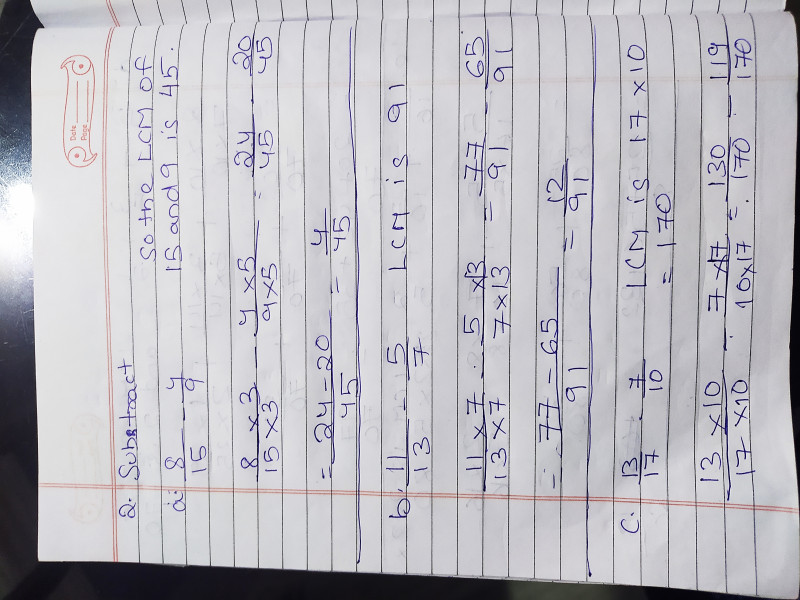 Date
Page
2. Substract
a. 8/15 - 4/9 So the LCM of
15 and 9 is 45.
8 × 3/15 × 3 - 4 × 5/9 × 5 = 24/45 - 20/45
= 24 - 20/45 = 4/45
b. 11/13 - 5/7 LCM is 91
11 × 7/13 × 7 - 5 × 13/7 × 13 = 77/91 - 65/91
= 77 - 65/91 = 12/91
c. 13/17 - 7/10 LCM is 17 × 10
= 170
13 × 10/17 × 10 - 7 × 17/10 × 17 = 130/170 - 119/170